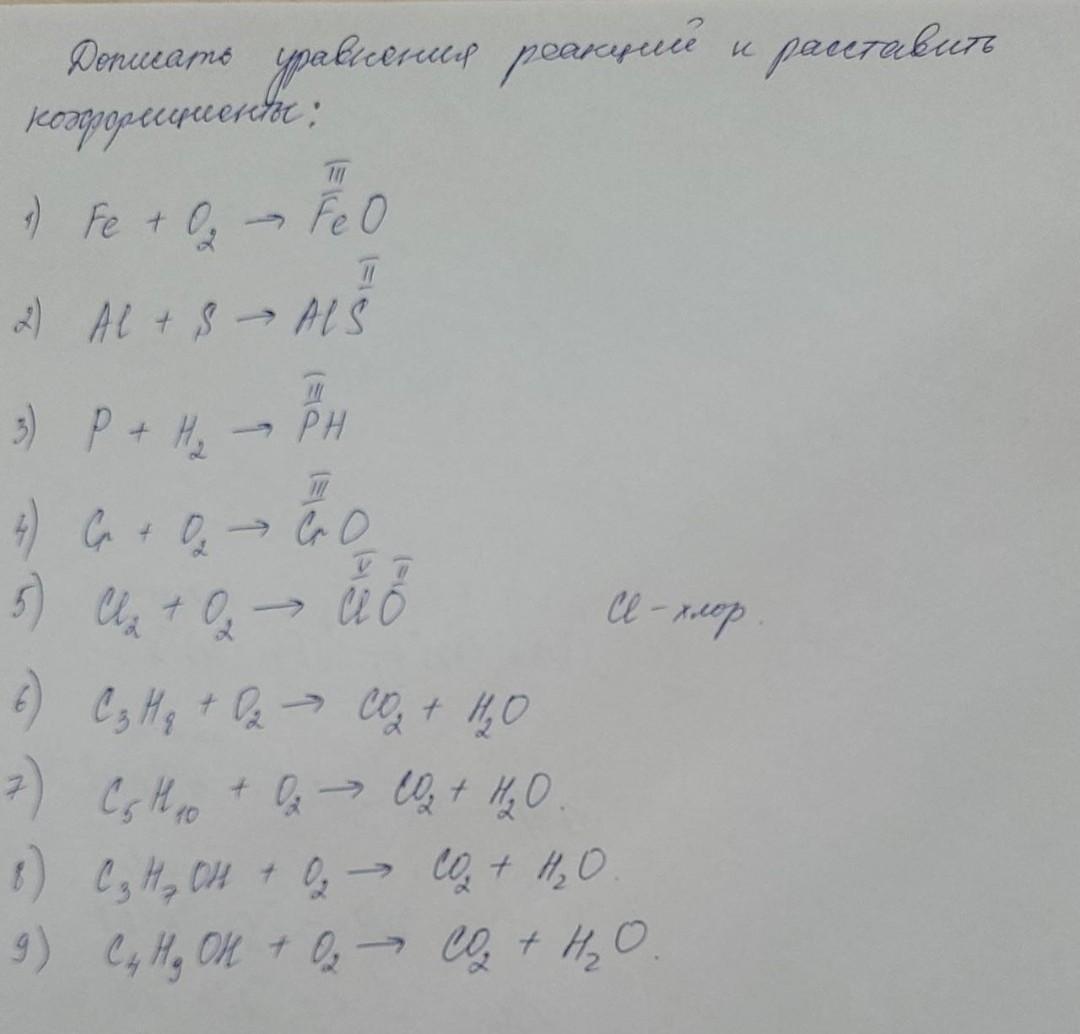 Дописать уравнения реакций и расставить
коэффициенты:
III
1) Fe + O₂ → FeO
II
2) Al + S → AlS
III
3) P + H₂ → PH
III
4) Cr + O₂ → CrO
V II
5) Cl₂ + O₂ → ClO Cl - хлор.
6) C₃H₈ + O₂ → CO₂ + H₂O
7) C₅H₁₀ + O₂ → CO₂ + H₂O.
8) C₃H₇OH + O₂ → CO₂ + H₂O.
9) C₄H₉OH + O₂ → CO₂ + H₂O.